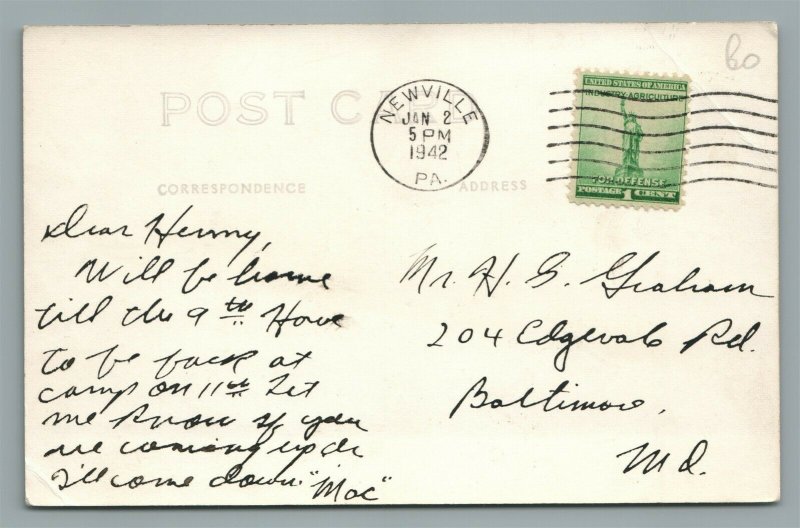 60
POST CARD
UNITED STATES OF AMERICA
INDUSTRY·AGRICULTURE
FOR DEFENSE
POSTAGE 1 CENT
NEWVILLE
JAN 2
5 PM
1942
PA.
CORRESPONDENCE
ADDRESS
Dear Henny,
Will be home
till the 9th Have
to be back at
camp on 11th Let
me know if you
are coming up or
I'll come down. "Mac"
Mr. H. G. Graham
204 Edgevale Rd.
Baltimore,
Md.